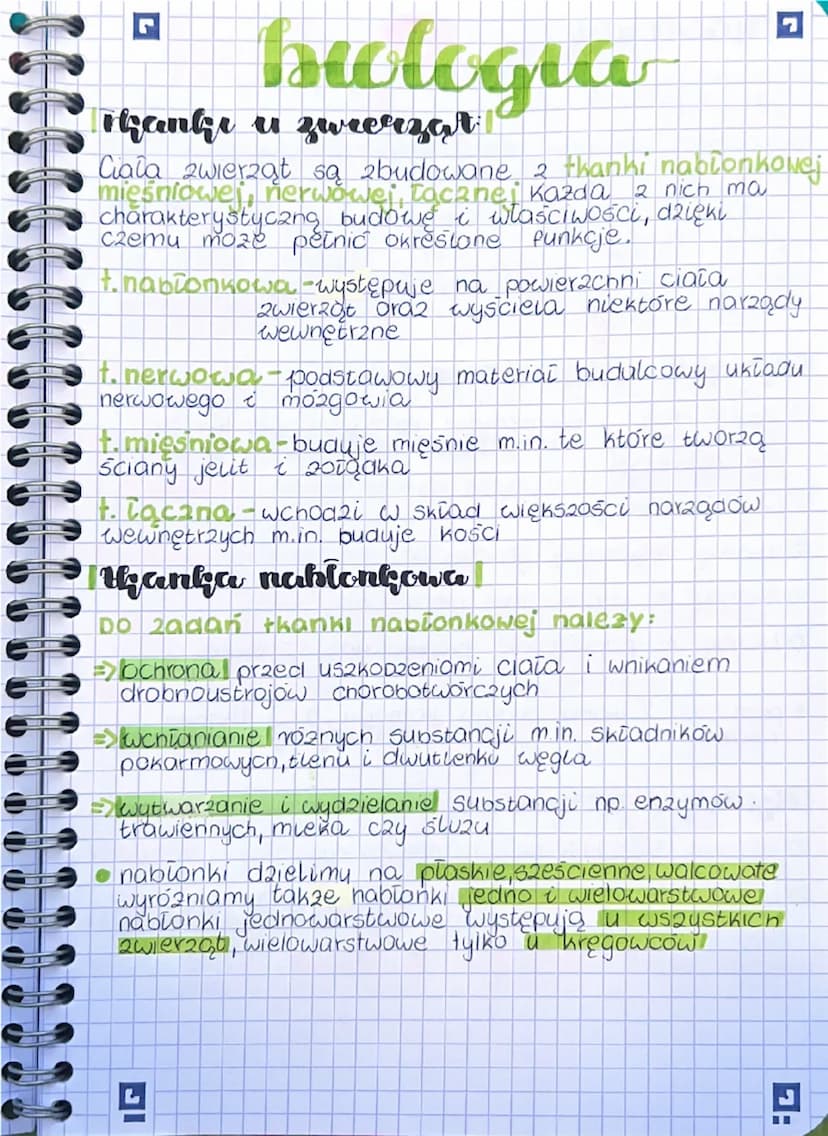 biologia
Tkanki u zwierząt:
Ciała zwierząt są zbudowane z tkanki nabłonkowej
mięśniowej, nerwowej, łącznej każda z nich ma
charakterystyczną budowę i właściwości, dzięki
czemu może pełnić określone funkcje.
t. nabłonkowa - występuje na powierzchni ciała
zwierząt oraz wyściela niektóre narządy
wewnętrzne
t. nerwowa - podstawowy materiał budulcowy układu
nerwowego i mózgowia
t. mięśniowa - buduje mięśnie m.in. te które tworzą
ściany jelit i żołądka
t. łączna - wchodzi w skład większości narządów
wewnętrzych m.in. buduje kości
tkanka nabłonkowa
DO zadań tkanki nabłonkowej należy:
⇒ ochrona przed uszkodzeniami ciała i wnikaniem
drobnoustrojów chorobotwórczych
⇒ wchłanianie różnych substancji m.in. składników
pokarmowych, tlenu i dwutlenku węgla
⇒ wytwarzanie i wydzielanie substancji np. enzymów
trawiennych, mleka czy śluzu
• nabłonki dzielimy na płaskie, sześcienne, walcowate
wyróżniamy także nabłonki jedno i wielowarstwowe
nabłonki jednowarstwowe występują u wszystkich
zwierząt, wielowarstwowe tylko u kręgowców